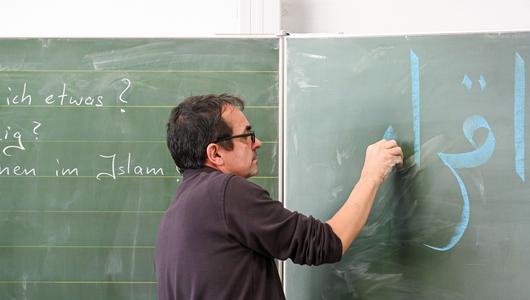 ich etwas ?
ig ?
nen im Islam
اقرا